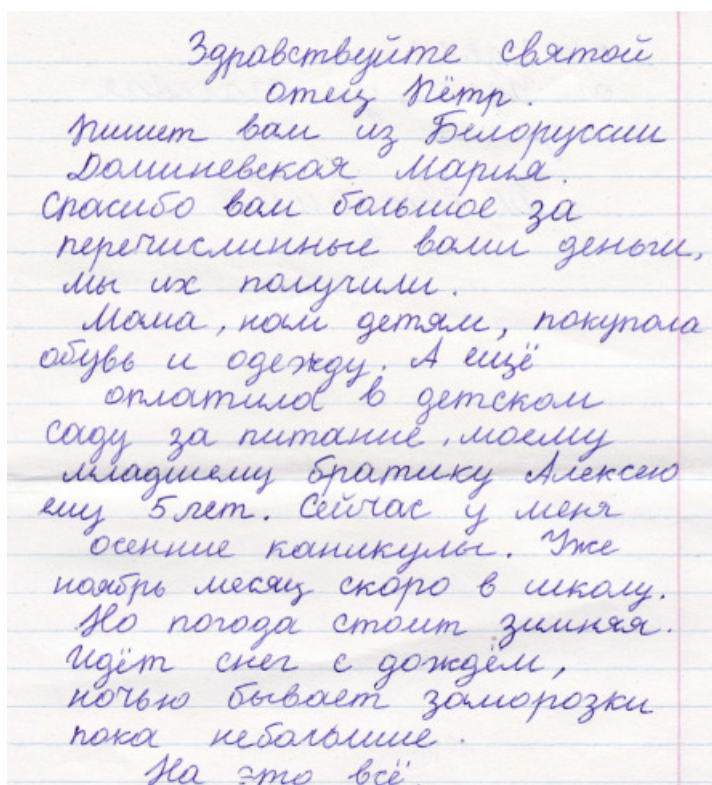 Здравствуйте святой
отец Пётр.
Пишет вам из Белоруссии
Доминевская Мария.
Спасибо вам большое за
перечислинные вами деньги,
мы их получили.
Мама, нам детям, покупала
обувь и одежду. А ещё
оплатила в детском
саду за питание, моему
младшему братику Алексею
ему 5 лет. Сейчас у меня
осенние каникулы. Уже
ноябрь месяц скоро в школу.
Но погода стоит зимняя.
Идёт снег с дождём,
ночью бывает заморозки
пока небольшие.
На это всё.